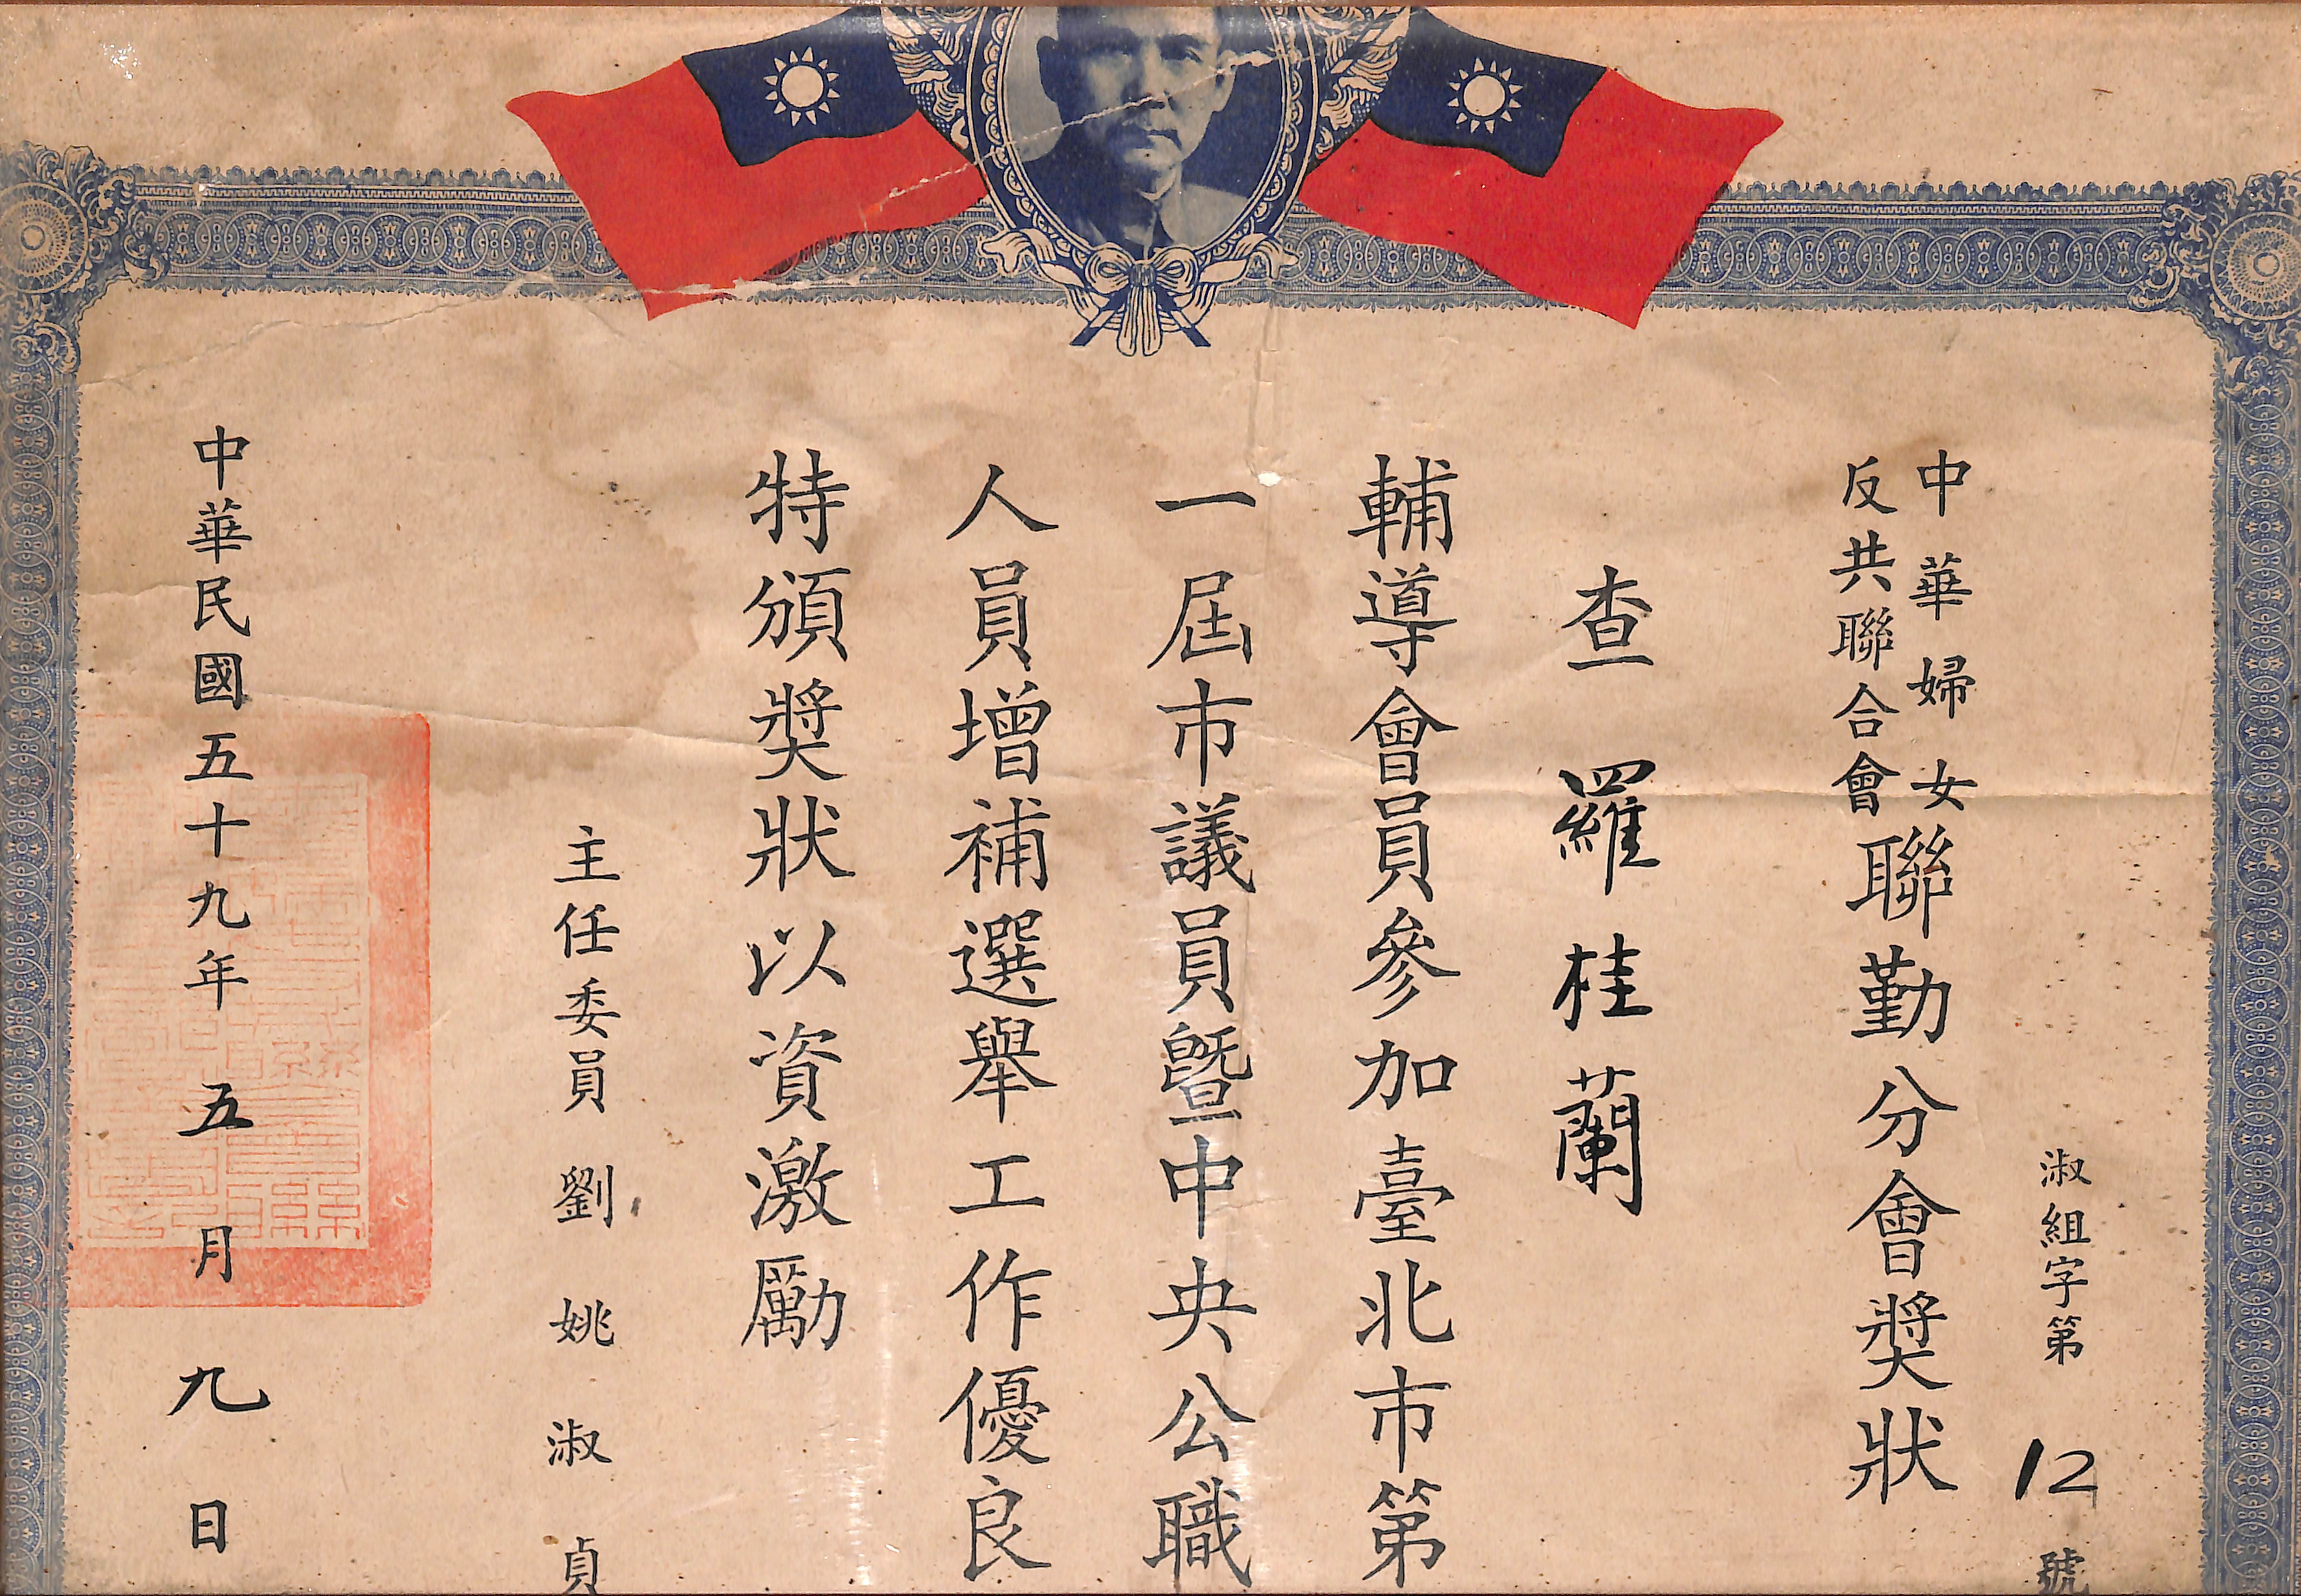 淑組字第12號
中華婦女
反共聯合會
聯勤分會獎狀
查 羅桂蘭
輔導會員參加臺北市第
一屆市議員暨中央公職
人員增補選舉工作優良
特頒獎狀以資激勵
主任委員 劉姚淑貞
中華民國五十九年五月九日